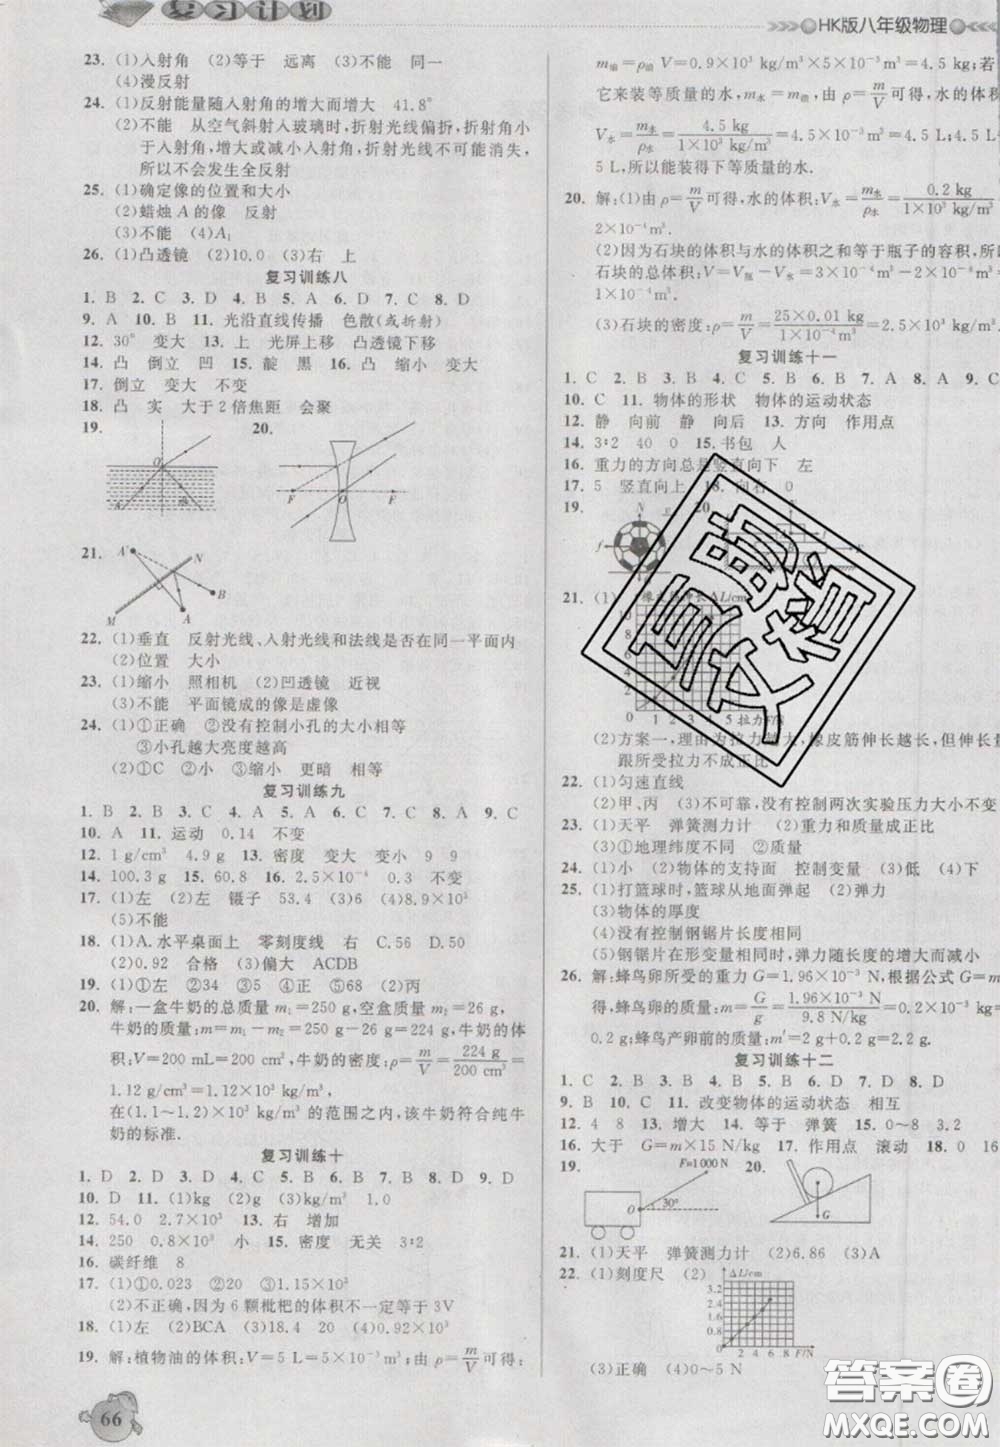 复习计划
HK版八年级物理
23. (1)入射角 (2)等于 远离 (3)不能 同一
(4)漫反射
24. (1)反射能量随入射角的增大而增大 41.8°
(2)不能 从空气斜射入玻璃时,折射光线偏折,折射角小
于入射角,增大或减小入射角,折射光线不可能消失,
所以不会发生全反射
25. (1)确定像的位置和大小
(2)蜡烛 A 的像 反射
(3)不能 (4)A₁
26. (1)凸透镜 (2)10.0 (3)右 上
复习训练八
1. B 2. C 3. D 4. B 5. A 6. D 7. C 8. D
9. A 10. B 11. 光沿直线传播 色散(或折射)
12. 30° 变大 13. 上 光屏上移 凸透镜下移
14. 凸 倒立 凹 15. 靛 黑 16. 凸 缩小 变大
17. 倒立 变大 不变
18. 凸 实 大于 2 倍焦距 会聚
19. 20.
O
A′
F O F
21. A′ N
M A
22. (1)垂直 反射光线、入射光线和法线是否在同一平面内
(2)位置 大小
23. (1)缩小 照相机 (2)凹透镜 近视
(3)不能 平面镜成的像是虚像
24. (1)①正确 ②没有控制小孔的大小相等
③小孔越大亮度越高
(2)①C ②小 ③缩小 更暗 相等
复习训练九
1. B 2. B 3. C 4. A 5. A 6. C 7. C 8. A 9. C
10. A 11. 运动 0.14 不变
12. 1 g/cm³ 4.9 g 13. 密度 变大 变小 9 9
14. 100.3 g 15. 60.8 16. 2.5×10⁻⁴ 0.3 不变
17. (1)左 (2)左 镊子 53.4 (3)6 (4)8.9×10³
(5)不能
18. (1)A.水平桌面上 零刻度线 右 C.56 D.50
(2)0.92 合格 (3)偏大 ACDB
19. (1)①左 ②34 ③5 ④正 ⑤68 (2)丙
20. 解:一盒牛奶的总质量 m₁=250 g,空盒质量 m₂=26 g,
牛奶的质量:m=m₁-m₂=250 g-26 g=224 g,牛奶的体
积:V=200 mL=200 cm³,牛奶的密度:ρ=m/V=224 g/200 cm³=
1.12 g/cm³=1.12×10³ kg/m³,
在(1.1~1.2)×10³ kg/m³ 的范围之内,该牛奶符合纯牛
奶的标准.
复习训练十
1. D 2. D 3. A 4. C 5. B 6. B 7. D 8. D 9. B
10. D 11. (1)kg (2)g (3)kg/m³ 1.0
12. 54.0 2.7×10³ 13. 右 增加
14. 250 0.8×10³ 小 15. 密度 无关 3∶2
16. 碳纤维 8
17. (1)①0.023 ②20 ③1.15×10³
(2)不正确,因为 6 颗枇杷的体积不一定等于 3V
18. (1)左 (2)BCA (3)18.4 20 (4)0.92×10³
19. 解:植物油的体积:V=5 L=5×10⁻³ m³;由 ρ=m/V可得:
66
m油=ρ油 V=0.9×10³ kg/m³×5×10⁻³ m³=4.5 kg;若
它来装等质量的水,m水=m油,由 ρ=m/V可得,水的体积
V水=m水/ρ水=4.5 kg/1×10³ kg/m³=4.5×10⁻³ m³=4.5 L;4.5 L
5 L,所以能装得下等质量的水.
20. 解:(1)由 ρ=m/V可得,水的体积:V水=m水/ρ水=0.2 kg/1×10³ kg/m³
2×10⁻⁴ m³.
(2)因为石块的体积与水的体积之和等于瓶子的容积,所以
石块的总体积:V=V瓶-V水=3×10⁻⁴ m³-2×10⁻⁴ m³
1×10⁻⁴ m³.
(3)石块的密度:ρ=m/V=25×0.01 kg/1×10⁻⁴ m³=2.5×10³ kg/m³.
复习训练十一
1. C 2. B 3. B 4. C 5. B 6. B 7. A 8. A 9. C
10. C 11. 物体的形状 物体的运动状态
12. 静 向前 静 向后 13. 方向 作用点
14. 3∶2 40 0 15. 书包 人
16. 重力的方向总是竖直向下 左
17. 5 竖直向上 18. 向右 0
19. N 20.
f
21. (1) 橡皮筋伸长ΔL/cm
10
8
6
4
2
0 1 2 3 4 5 拉力F/N
(2)方案一,理由为拉力越大,橡皮筋伸长越长,但伸长量
跟所受拉力不成正比
22. (1)匀速直线
(2)甲、丙 (3)不可靠,没有控制两次实验压力大小相等
23. (1)天平 弹簧测力计 (2)重力和质量成正比
(3)①地理纬度不同 ②质量
24. (1)小 (2)物体的支持面 控制变量 (3)低 (4)下
25. (1)打篮球时,篮球从地面弹起 (2)弹力
(3)物体的厚度
(4)没有控制钢锯片长度相同
(5)钢锯片在形变量相同时,弹力随长度的增大而减小
26. 解:蜂鸟卵所受的重力 G=1.96×10⁻³ N,根据公式 G=m
得,蜂鸟卵的质量:m=G/g=1.96×10⁻³ N/9.8 N/kg=0.2×10⁻³ kg
0.2 g;蜂鸟产卵前的质量:m′=2 g+0.2 g=2.2 g.
复习训练十二
1. C 2. B 3. D 4. B 5. B 6. D 7. D 8. D
9. B 10. C 11. 改变物体的运动状态 相互
12. 4 8 13. 增大 14. 等于 弹簧 15. 0~8 3.2
16. 大于 G=m×15 N/kg 17. 作用点 滚动 18. 0 16
19. F=1000 N 20.
O 30°
G
21. (1)天平 弹簧测力计 (2)6.86 (3)A
22. (1)刻度尺 (2) ΔL/cm
3.2
2.4
1.6
0.8
0 1 2 3 4 5 6 7 8 F/N
(3)正确 (4)0~5 N
答案圈
MXQE.COM